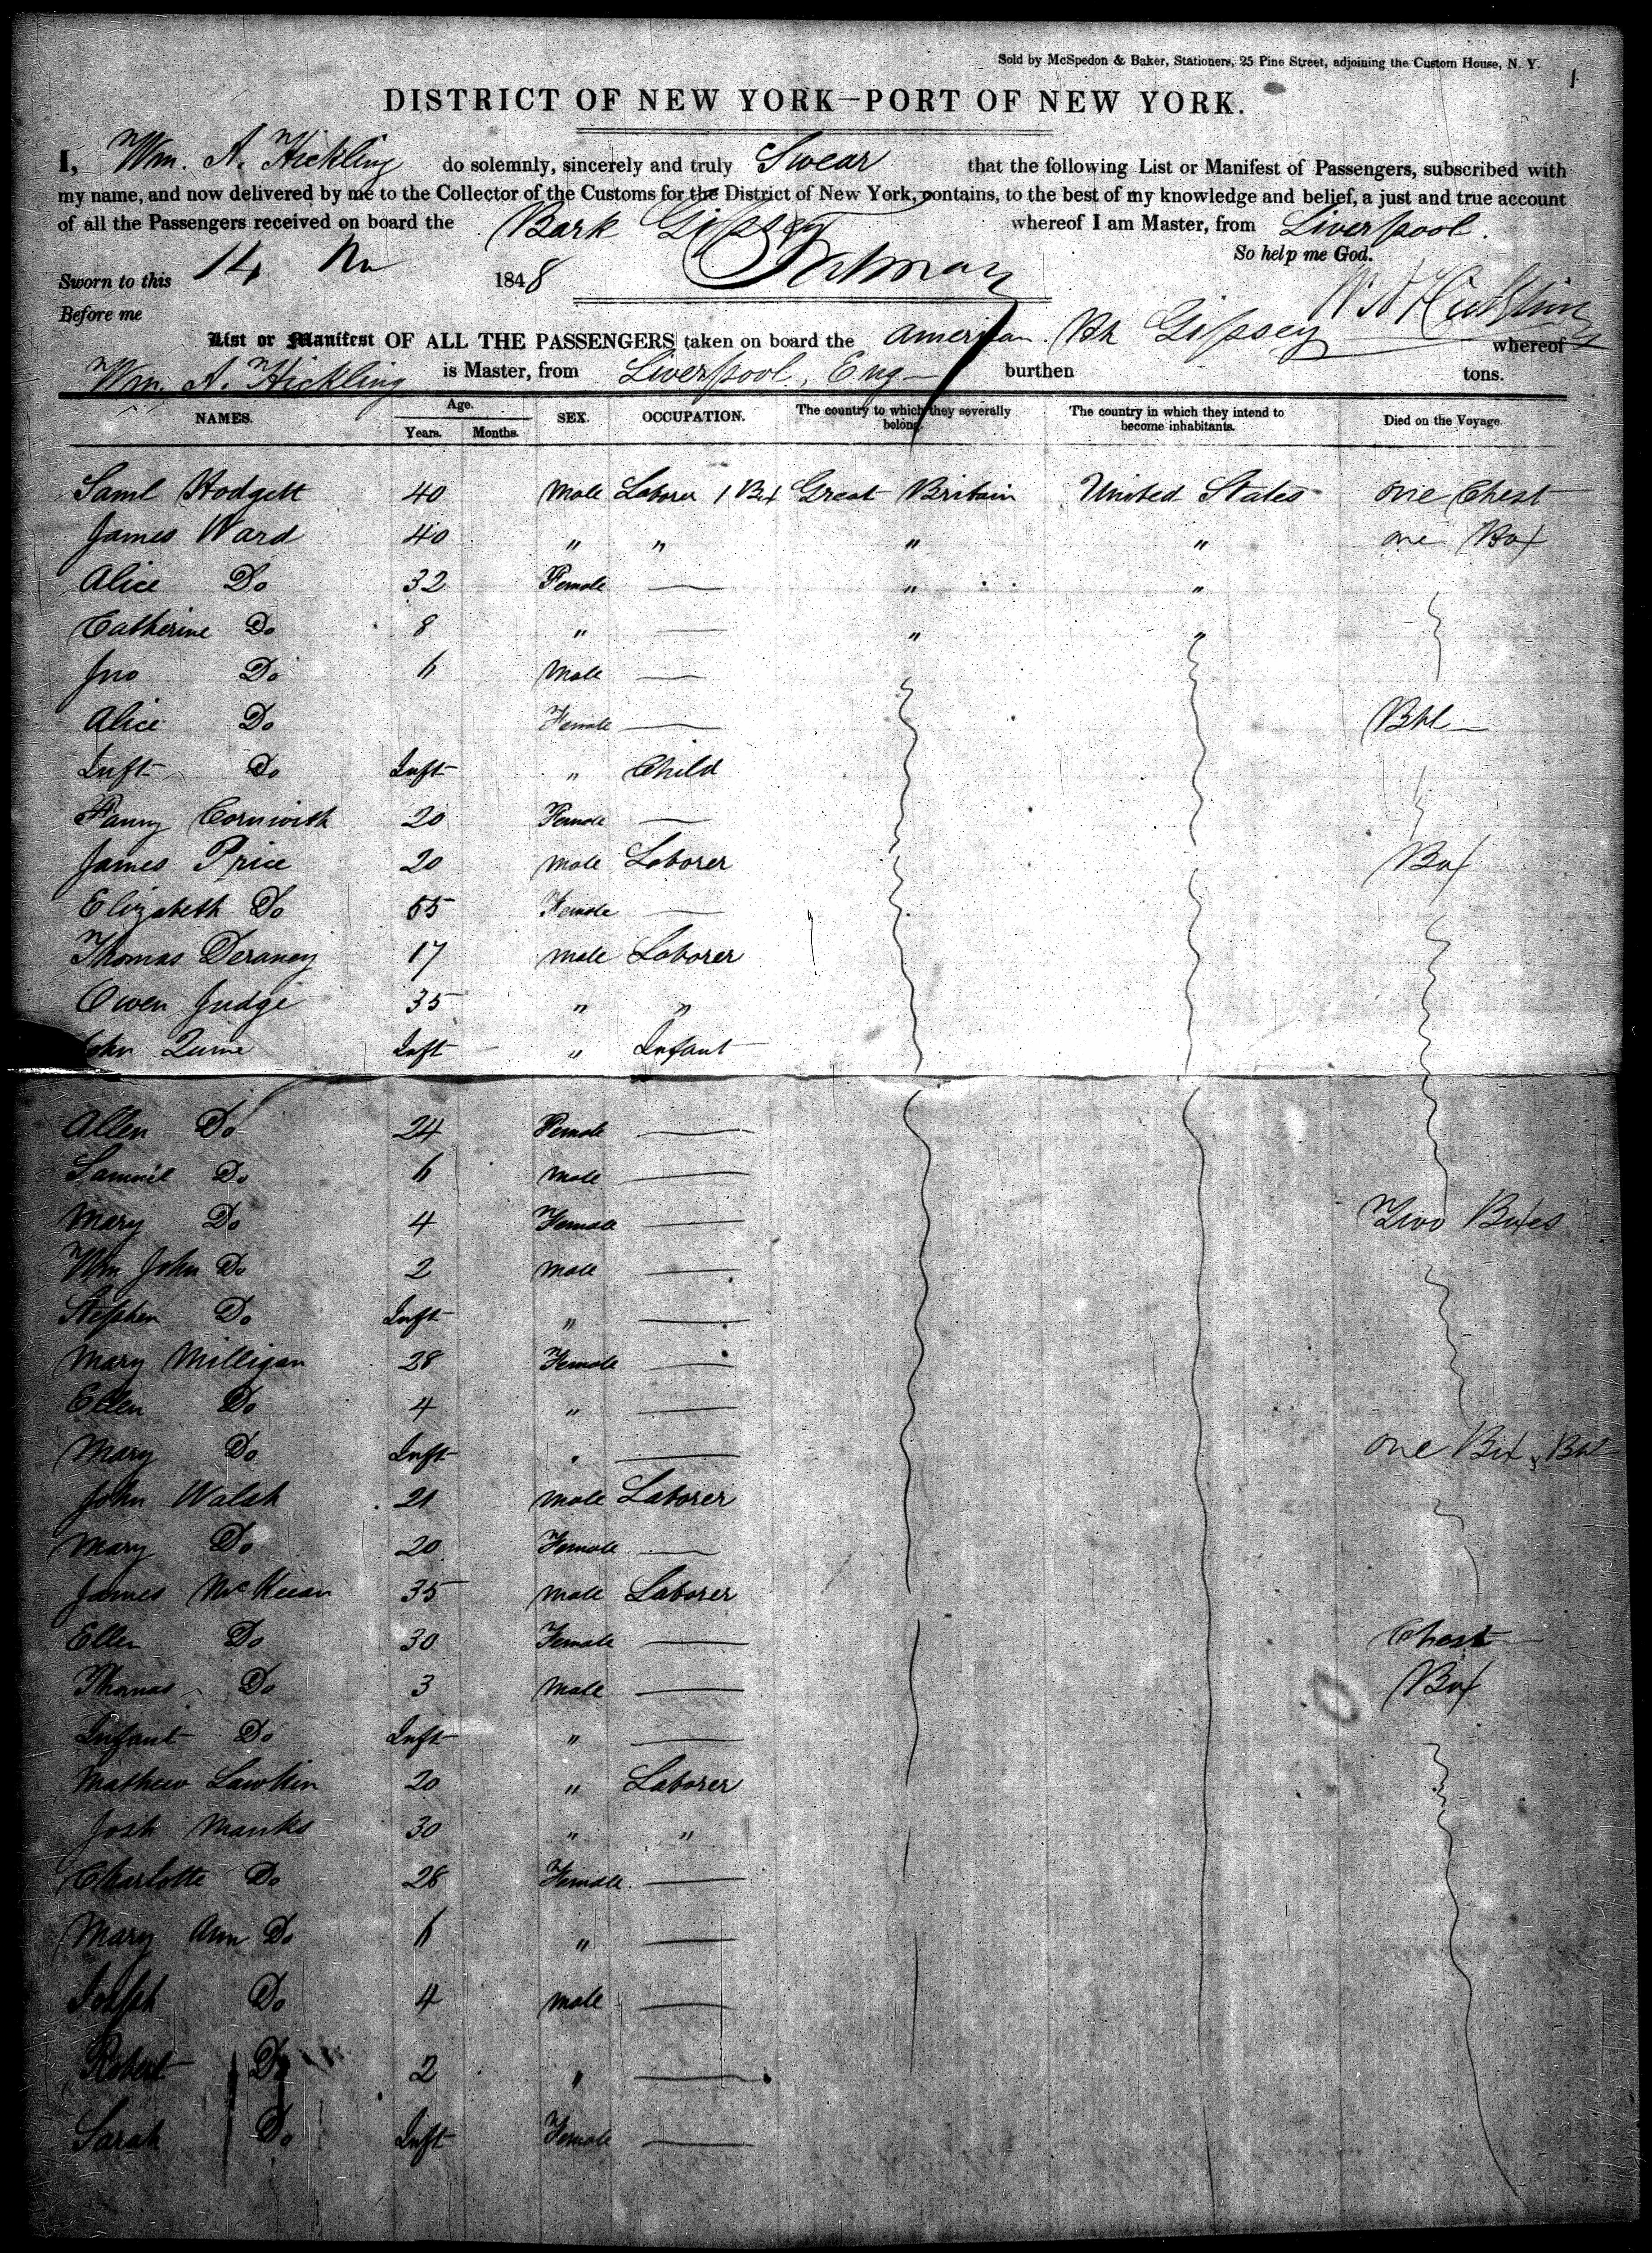 Sold by McSpedon & Baker, Stationers, 25 Pine Street, adjoining the Custom House, N. Y.
1
DISTRICT OF NEW YORK—PORT OF NEW YORK.
I, Wm. A. Hickling do solemnly, sincerely and truly Swear that the following List or Manifest of Passengers, subscribed with
my name, and now delivered by me to the Collector of the Customs for the District of New York, contains, to the best of my knowledge and belief, a just and true account
of all the Passengers received on board the Bark Gipsey whereof I am Master, from Liverpool.
So help me God.
Sworn to this 14 1848
Before me
List or Manifest OF ALL THE PASSENGERS taken on board the American Bk Gipsey whereof
Wm. A. Hickling is Master, from Liverpool, Eng burthen tons.
NAMES. Age. Years. Months. SEX. OCCUPATION. The country to which they severally belong. The country in which they intend to become inhabitants. Died on the Voyage.
Saml Hodgett 40 Male Laborer 1 Bx Great Britain United States one Chest
James Ward 40 " " " " one Box
Alice Do 32 Female — " "
Catherine Do 8 " — " "
Jno Do 6 Male —
Alice Do Female — Bbl
Inft Do Inft " Child
Fanny Cornwith 20 Female —
James Price 20 Male Laborer Box
Elizabeth Do 55 Female —
Thomas Deraney 17 Male Laborer
Owen Judge 35 " "
John Quine Inft " Infant
Allen Do 24 Female —
Samuel Do 6 Male —
Mary Do 4 Female — Two Boxes
Wm John Do 2 Male —
Stephen Do Inft " —
Mary Milligan 28 Female —
Ellen Do 4 " —
Mary Do Inft " — one Box &
John Walsh 21 Male Laborer
Mary Do 20 Female —
James McKeean 35 Male Laborer
Ellen Do 30 Female — Chest
Thomas Do 3 Male — Box
Infant Do Inft " —
Mathew Lawkin 20 " Laborer
Josh Manks 30 " "
Charlotte Do 28 Female —
Mary Ann Do 6 " —
Joseph Do 4 Male —
Robert Do 2 " —
Sarah Do Inft Female —